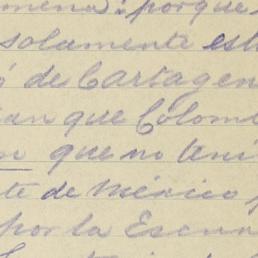 mena): porque
solamente est
ó de Cartagen
ian que Colom
que no teni
te de México
por la Escua